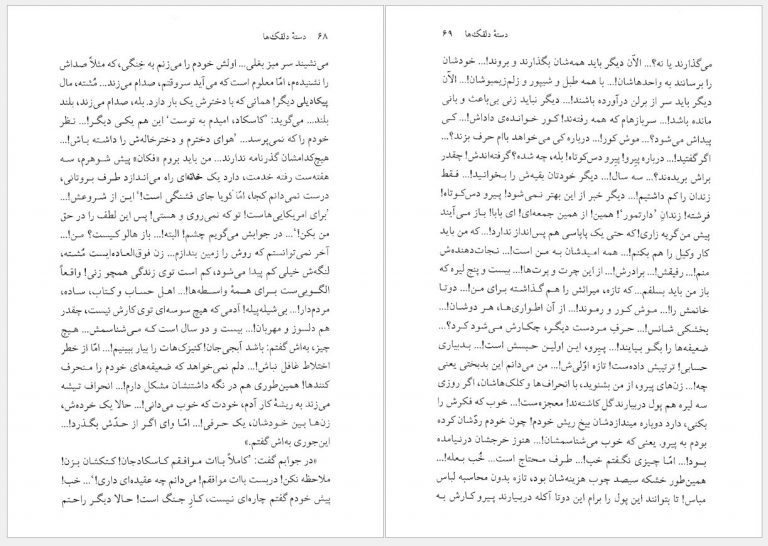 دستهٔ دلقک‌ها ۶۸
می‌نشیند سر میز بغلی... اولش خودم را می‌زنم به خِنگی، که مثلاً صداش
را نشنیده‌م، امّا معلوم است که می‌آید سروقتم، صدام می‌زند... مُشته، مال
پیکادیلی دیگر! همانی که با دخترش یک بار دارد. بله، صدام می‌زند، بلند
بلند... می‌گوید: "کاسکاد، امیدم به توست" این هم یکی دیگر!... نظر
خودم را که نمی‌پرسد... 'هوای دخترم و دخترخاله‌ش را داشته بـاش!...
هیچ‌کدامشان گذرنامه ندارند... من باید بروم «فکان» پیش شوهرم، سه
هفته‌ست رفته خدمت، دارد یک خانه‌ای راه می‌اندازد طرف بروتانی،
درست نمی‌دانم کجا، امّا گویا جای قشنگی است!' ایـن از شـروعش!...
'برای امریکایی‌هاست! تو که نمی‌روی و هستی! پس این لطف را در حق
من بکن!'... در جوابش می‌گویم چشم! البته!... باز هالو کیست؟ من!...
آخر نمی‌توانستم که روش را زمین بندازم... زن فوق‌العاده‌ایست مُشته،
لنگه‌ش خیلی کم پیدا می‌شود، کم است توی زندگی همچو زنی! واقعاً
الگویی‌ست بـرای همهٔ واسطه‌ها!... اهـل حسـاب و کـتاب، سـاده،
مردم‌دار!... بی‌شیله‌پیله! آدمی که هیچ سوسه‌ای توی کارش نیست، چقدر
هم دلسوز و مهربان!... بیست و دو سال است کـه مـی‌شناسمش... هیچ
چیز، به‌اش گفتم: باشد آبجی‌جان! کنیزک‌هات را بیار ببینیم!... امّا از خطر
اختلاط غافل نباش!... دلم نمی‌خواهد که ضعیفه‌های خودم را منحرف
کنندها! همین‌طوری هم در نگه داشتنشان مشکل دارم!... انحراف تیشه
می‌زند به ریشهٔ کار آدم، خودت که خوب می‌دانی!... حالا یک خرده‌ش،
زن‌ها بـین خودشان، یک حرفی!... امّا وای اگر از حدّش بگذرد!...
این‌جوری به‌اش گفتم.»
«در جوابم گفت: 'کاملاً باات موافقم کاسکادجان! کتکشان بزن!
ملاحظه نکن! دربست باات موافقم! می‌دانم چه عقیده‌ای داری!'... خب!
پیش خودم گفتم چاره‌ای نیست، کار جنگ است! حالا دیگر راحتم
دستهٔ دلقک‌ها ۶۹
می‌گذارند یا نه؟... الآن دیگر باید همه‌شان بگذارند و بروند!... خودشان
را برسانند به واحدهاشان!... با همه طبل و شیپور و زلم‌زیمبوشان!... الآن
دیگر باید سر از برلن درآورده باشند!... دیگر نباید زنی بی‌باعث و بانی
مانده باشد!... سربازهام که همه رفته‌ند! کور خوانده‌ی داداش!... کی
پیداش می‌شود؟... موش کور!... درباره کی می‌خواهد باام حرف بزند؟...
اگر گفتید!... درباره پیرو! پیرو دس‌کوتاه! بله، چه شده؟ گرفته‌اندش! چقدر
براش بریده‌ند؟... سه سال!... دیگر خودتان بقیه‌ش را بخوانید!... فـقط
زندان را کم داشتیم!... دیگر خبر از این بهتر نمی‌شود! پیرو دس‌کوتاه!...
فرشته! زندانِ 'دارتمور'! همین! از همین جمعه‌ای! ای بابا! باز مـی‌آیند
پیش من‌گریه زاری! که حتی یک پاپاسی هم پس‌انداز ندارد!... که من باید
کار وکیل را هم بکنم!... همه امیدشان بـه مـن است!... نـجات‌دهنده‌ش
منم!... رفیقش!... برادرش!... از این چرت و پرت‌ها!... بیست و پنج لیره که
باز من باید بسلفم... که تازه، میراثش را هـم گـذاشته بـرای مـن!... دوتـا
خانمش را!... موش کور و رموند!... از آن اطواری‌ها، هر دوشـان!...
بخشکی شـانس!... حـرف مـردست دیـگر، چکـارش مـی‌شود کـرد؟...
ضعیفه‌ها را بگـو بـیایند!... پیرو، این اولین حبسش است!... بـدبیاری
حسابی! ترتیبش داده‌ست! تازه اوّلی‌ش!... من می‌دانم این بدبختی یعنی
چه!... زن‌های پیرو، از من بشنوید، با انحراف‌ها و کلک‌هاشان، اگر روزی
سه لیره هم پول دربیارند گل کاشته‌ند! معجزه‌ست!... خوب که فکرش را
بکنی، دارد دوباره میندازدشان بیخ ریش خودم! چون خودم ردّشان کرده
بودم به پیرو. یعنی که خوب می‌شناسمشان!... هنوز خرجشان درنیامده
بود!... امّا چیزی نگـفتم خب!... طـرف مـحتاج است... خُب بـعله!...
همین‌طور خشکه سیصد چوب هزینه‌شان بود، تازه بدون محاسبه لباس
مباس! تا بتوانند این پول را برام این دوتا آکله دربیارند پیرو کارش بـه